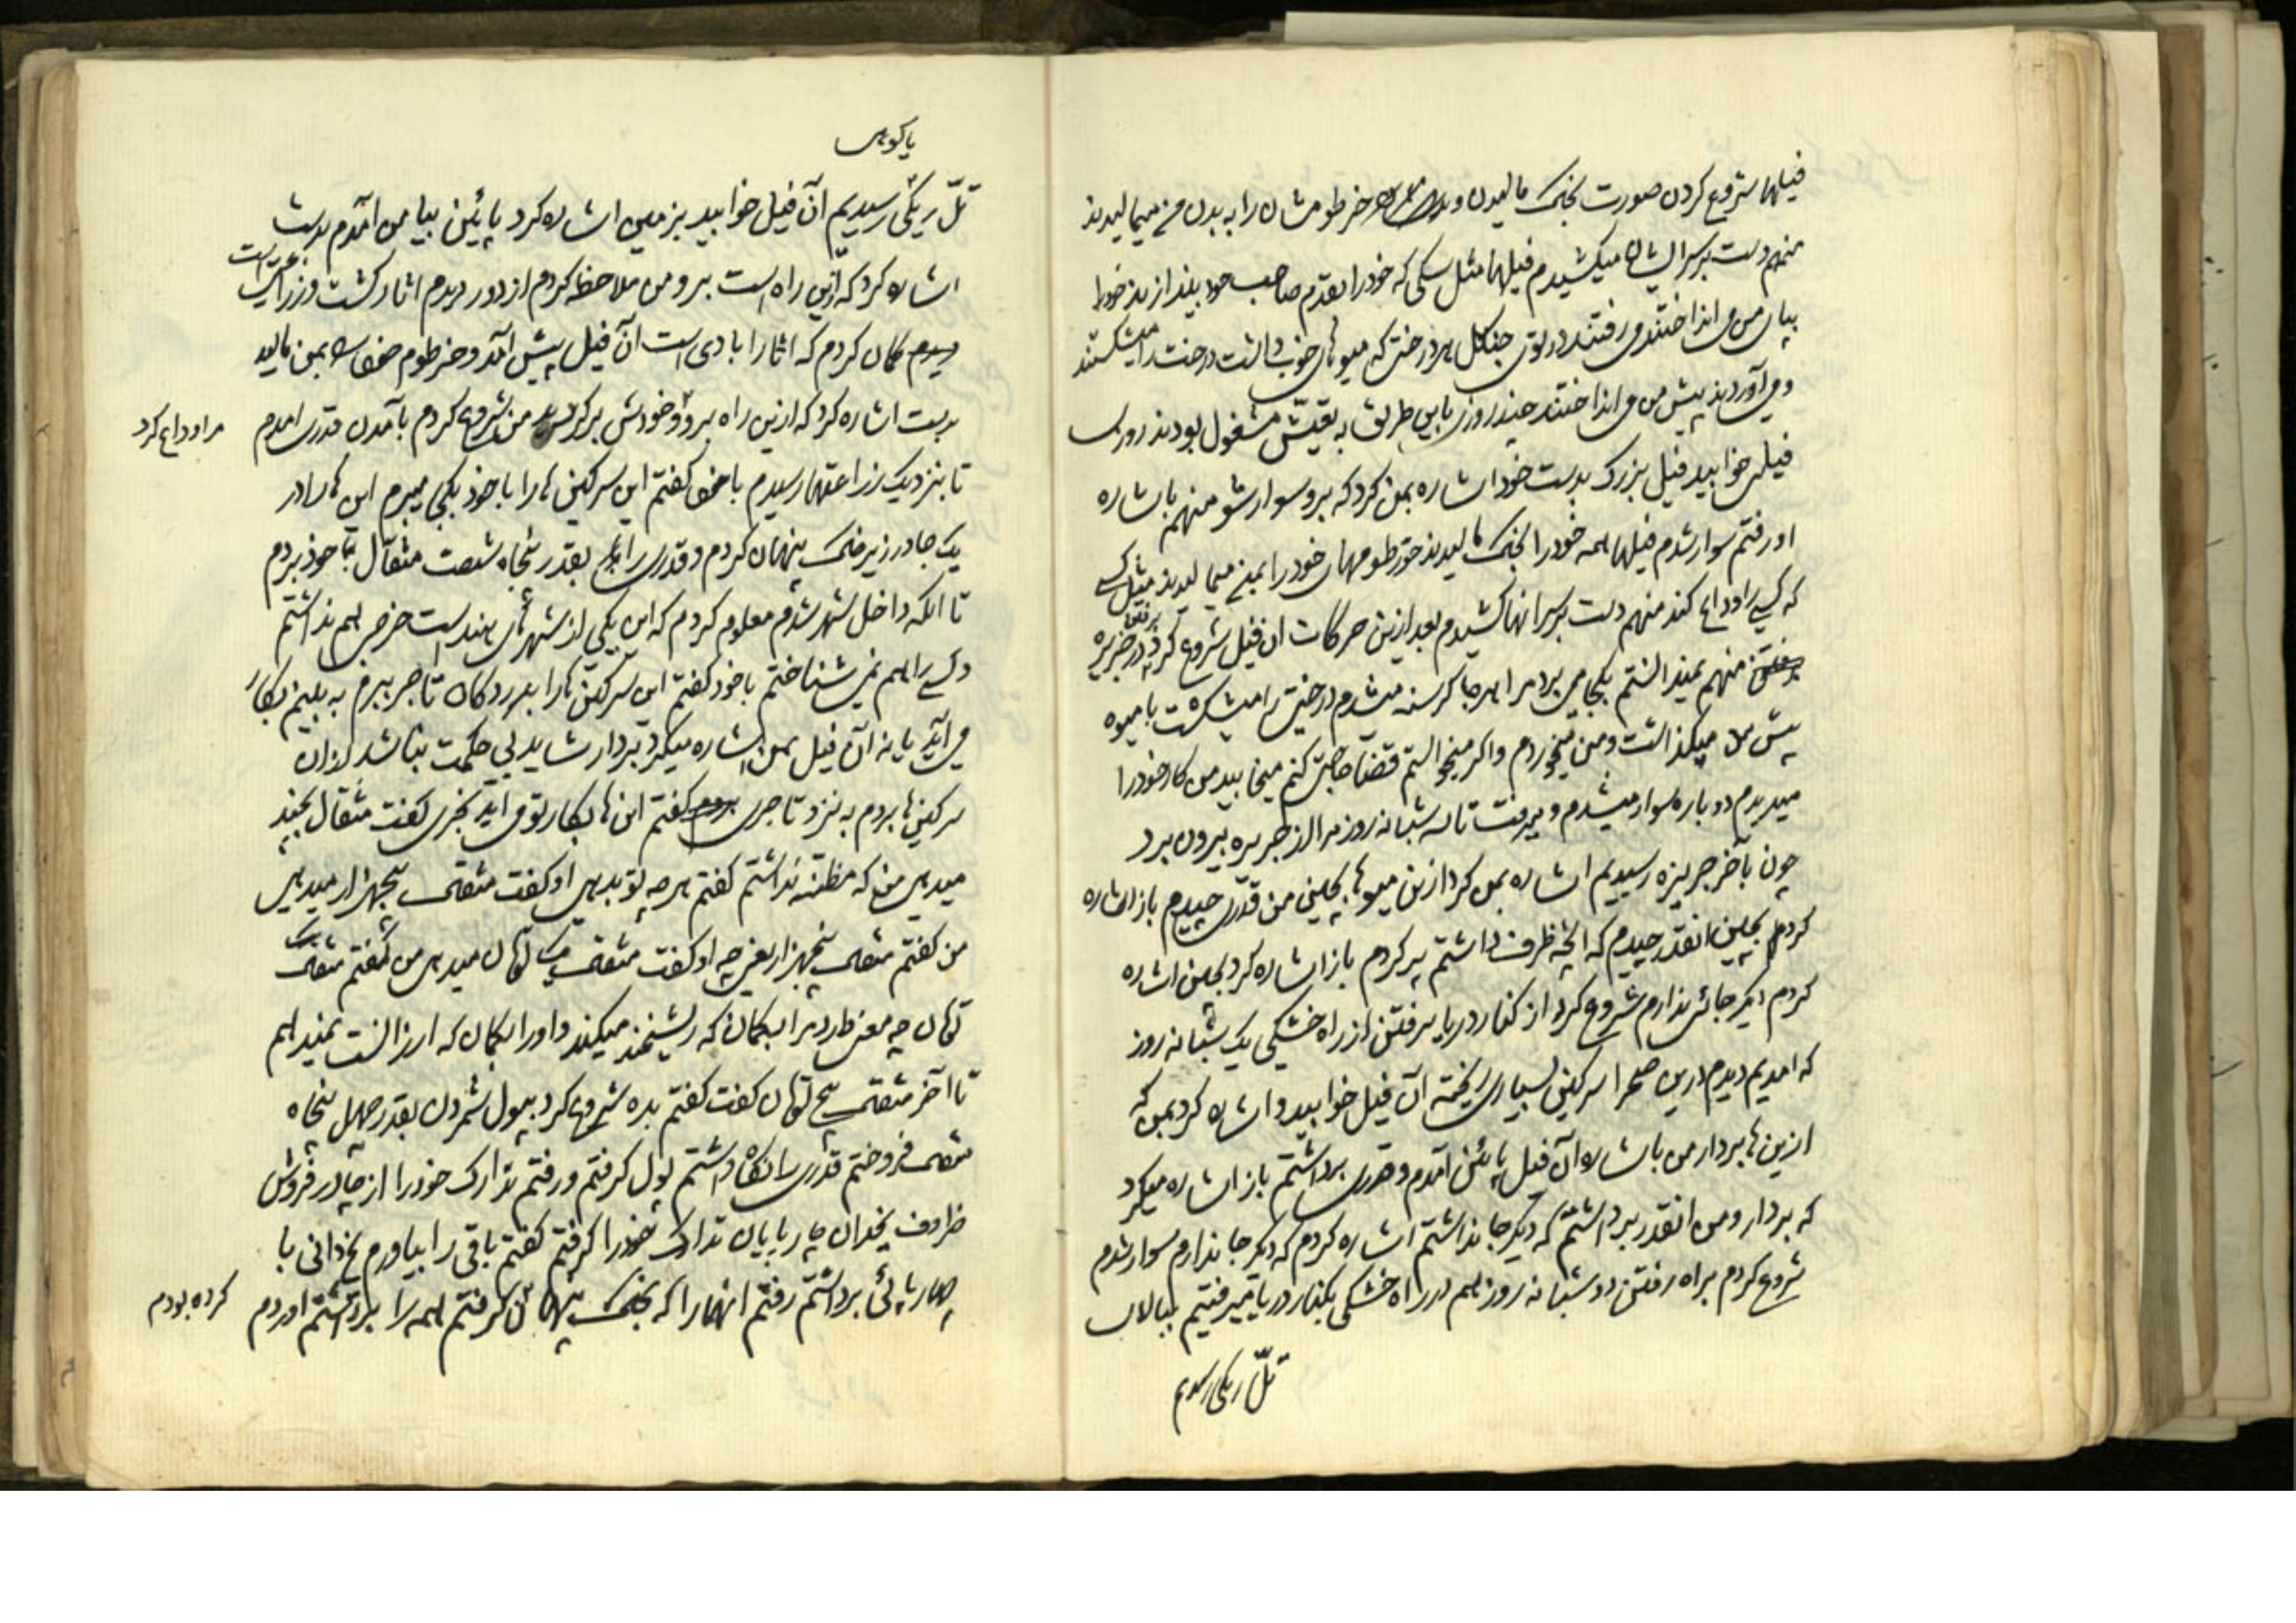 فیلها شروع کردن صورت بخاک مالیدن و خرطومشان را به بدن من میمالیدند
منهم دست بر سر ایشان میکشیدم فیلها مثل سکی که خود را بقدم صاحب خود بیندازند خود را
بپای من می انداختند می رفتند در توی جنکل هر درختی که میوهای خوب داشت درخت را میشکستند
و می آوردند پیش من می انداختند چند روزی باین طریق به تعیش مشغول بودند روزی
فیلی خوابید فیل بزرک بدست خود اشاره بمن کرد که برو سوار شو منهم باشاره
او رفتم سوار شدم فیلها همه خود را بخاک مالیدند خرطومهای خود را بمن میمالیدند مثل کسی
که کسی را وداع کند منهم دست بر سر انها کشیدم بعد ازین حرکات ان فیل شروع کرد در جزیره برفتن
منهم نمیدانستم بکجا می برد مرا هر جا کرسنه میشدم درختی را میشکست با میوه
پیش من میکذاشت و من میخوردم و اکر میخواستم قضا حاجتی کنم میخوابید من کار خود را
میدیدم دوباره سوار میشدم و میرفت تا سه شبانه روز مرا از جزیره بیرون برد
چون بآخر جزیره رسیدیم اشاره بمن کرد ازین میوها بچین من قدری چیدم باز اشاره
کرد بچین انقدر چیدم که انچه ظرف داشتم پر کردم باز اشاره کرد بچین اشاره
کردم دیکر جائی ندارم شروع کرد از کنار دریا برفتن از راه خشکی یک شبانه روز
که امدیم دیدم درین صحرا سرکین بسیاری ریخته آن فیل خوابید و اشاره کرد بمن که
ازین ها بردار من باشاره آن فیل پائین آمدم و قدری برداشتم باز اشاره میکرد
که بردار و من انقدر برداشتم که دیکر جا نداشتم اشاره کردم که دیکر جا ندارم سوار شدم
شروع کردم براه رفتن دو شبانه روز هم در راه خشکی بکنار دریا میرفتیم ببالای
تلّ ریکی رسیدیم
یا کوهی
تلّ ریکی رسیدیم آن فیل خوابید بزمین اشاره کرد پائین بیا من آمدم بدست
اشاره کرد که ازین راه است برو من ملاحظه کردم از دور دیدم اثار کشت و زراعت است
دیدم کمان کردم که اثار ابادی است آن فیل پیش آمد و خرطوم خود را بمن مالید
بدست اشاره کرد که ازین راه برو و خودش برکردید من شروع کردم بآمدن قدری امدم
مرا وداع کرد
تا بنزدیک زراعتها رسیدم با خود کفتم این سرکین ها را با خود بکجا میبرم این ها را در
یک جا در زیر خاک پنهان کردم و قدری را بقدر پنجاه شصت مثقال با خود بردم
تا انکه داخل شهر شدم معلوم کردم که این یکی از شهرهای هند است خرجی هم نداشتم
و کسی را هم نمی شناختم با خود کفتم این سرکین ها را بدر دکان تاجر ببرم به بینم بکار
می آید یا نه آن فیل بمن اشاره میکرد بردار شاید بی حکمت نباشد از آن
سرکین ها بردم به نزد تاجری کفتم این ها بکار تو می اید بخری کفت مثقال بچند
میدهی من که مظنه نداشتم کفتم هر چه تو بدهی او کفت مثقالی پنجهزار میدهی
من کفتم مثقالی پنجهزار یعنی چه او کفت مثقالی یک تومان میدهی من کفتم مثقالی یک
تومان چه معنی دارد مرا بکمان که ریشخند میکند و او را بکمان که ارزانست نمیدهم
تا آخر مثقالی پنج تومان کفت کفتم بده شروع کرد بپول شمردن بقدر چهل پنجاه
مثقالی فروختم قدری را نکاه داشتم پول کرفتم و رفتم تدارک خود را از چادر فروش
ظروف یخدان چارپایان تدارک خود را کرفتم کفتم باقی را بیاورم یخدانی با
چهارپائی برداشتم رفتم انها را که بخاک پنهان کرفتم همه را برداشتم اوردم
کرده بودم